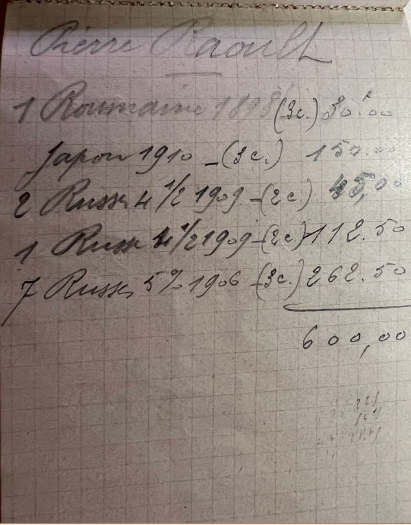 Pierre Raoult
1 Roumaine 1898 (3c.) 30.00
Japon 1910 - (3c.) 150.00
2 Russes 4 1/2 1909 - (2c) 45,00
1 Russe 4 1/2 1909 - (2c) 112.50
7 Russes 5% 1906 - (3c.) 262.50
600,00